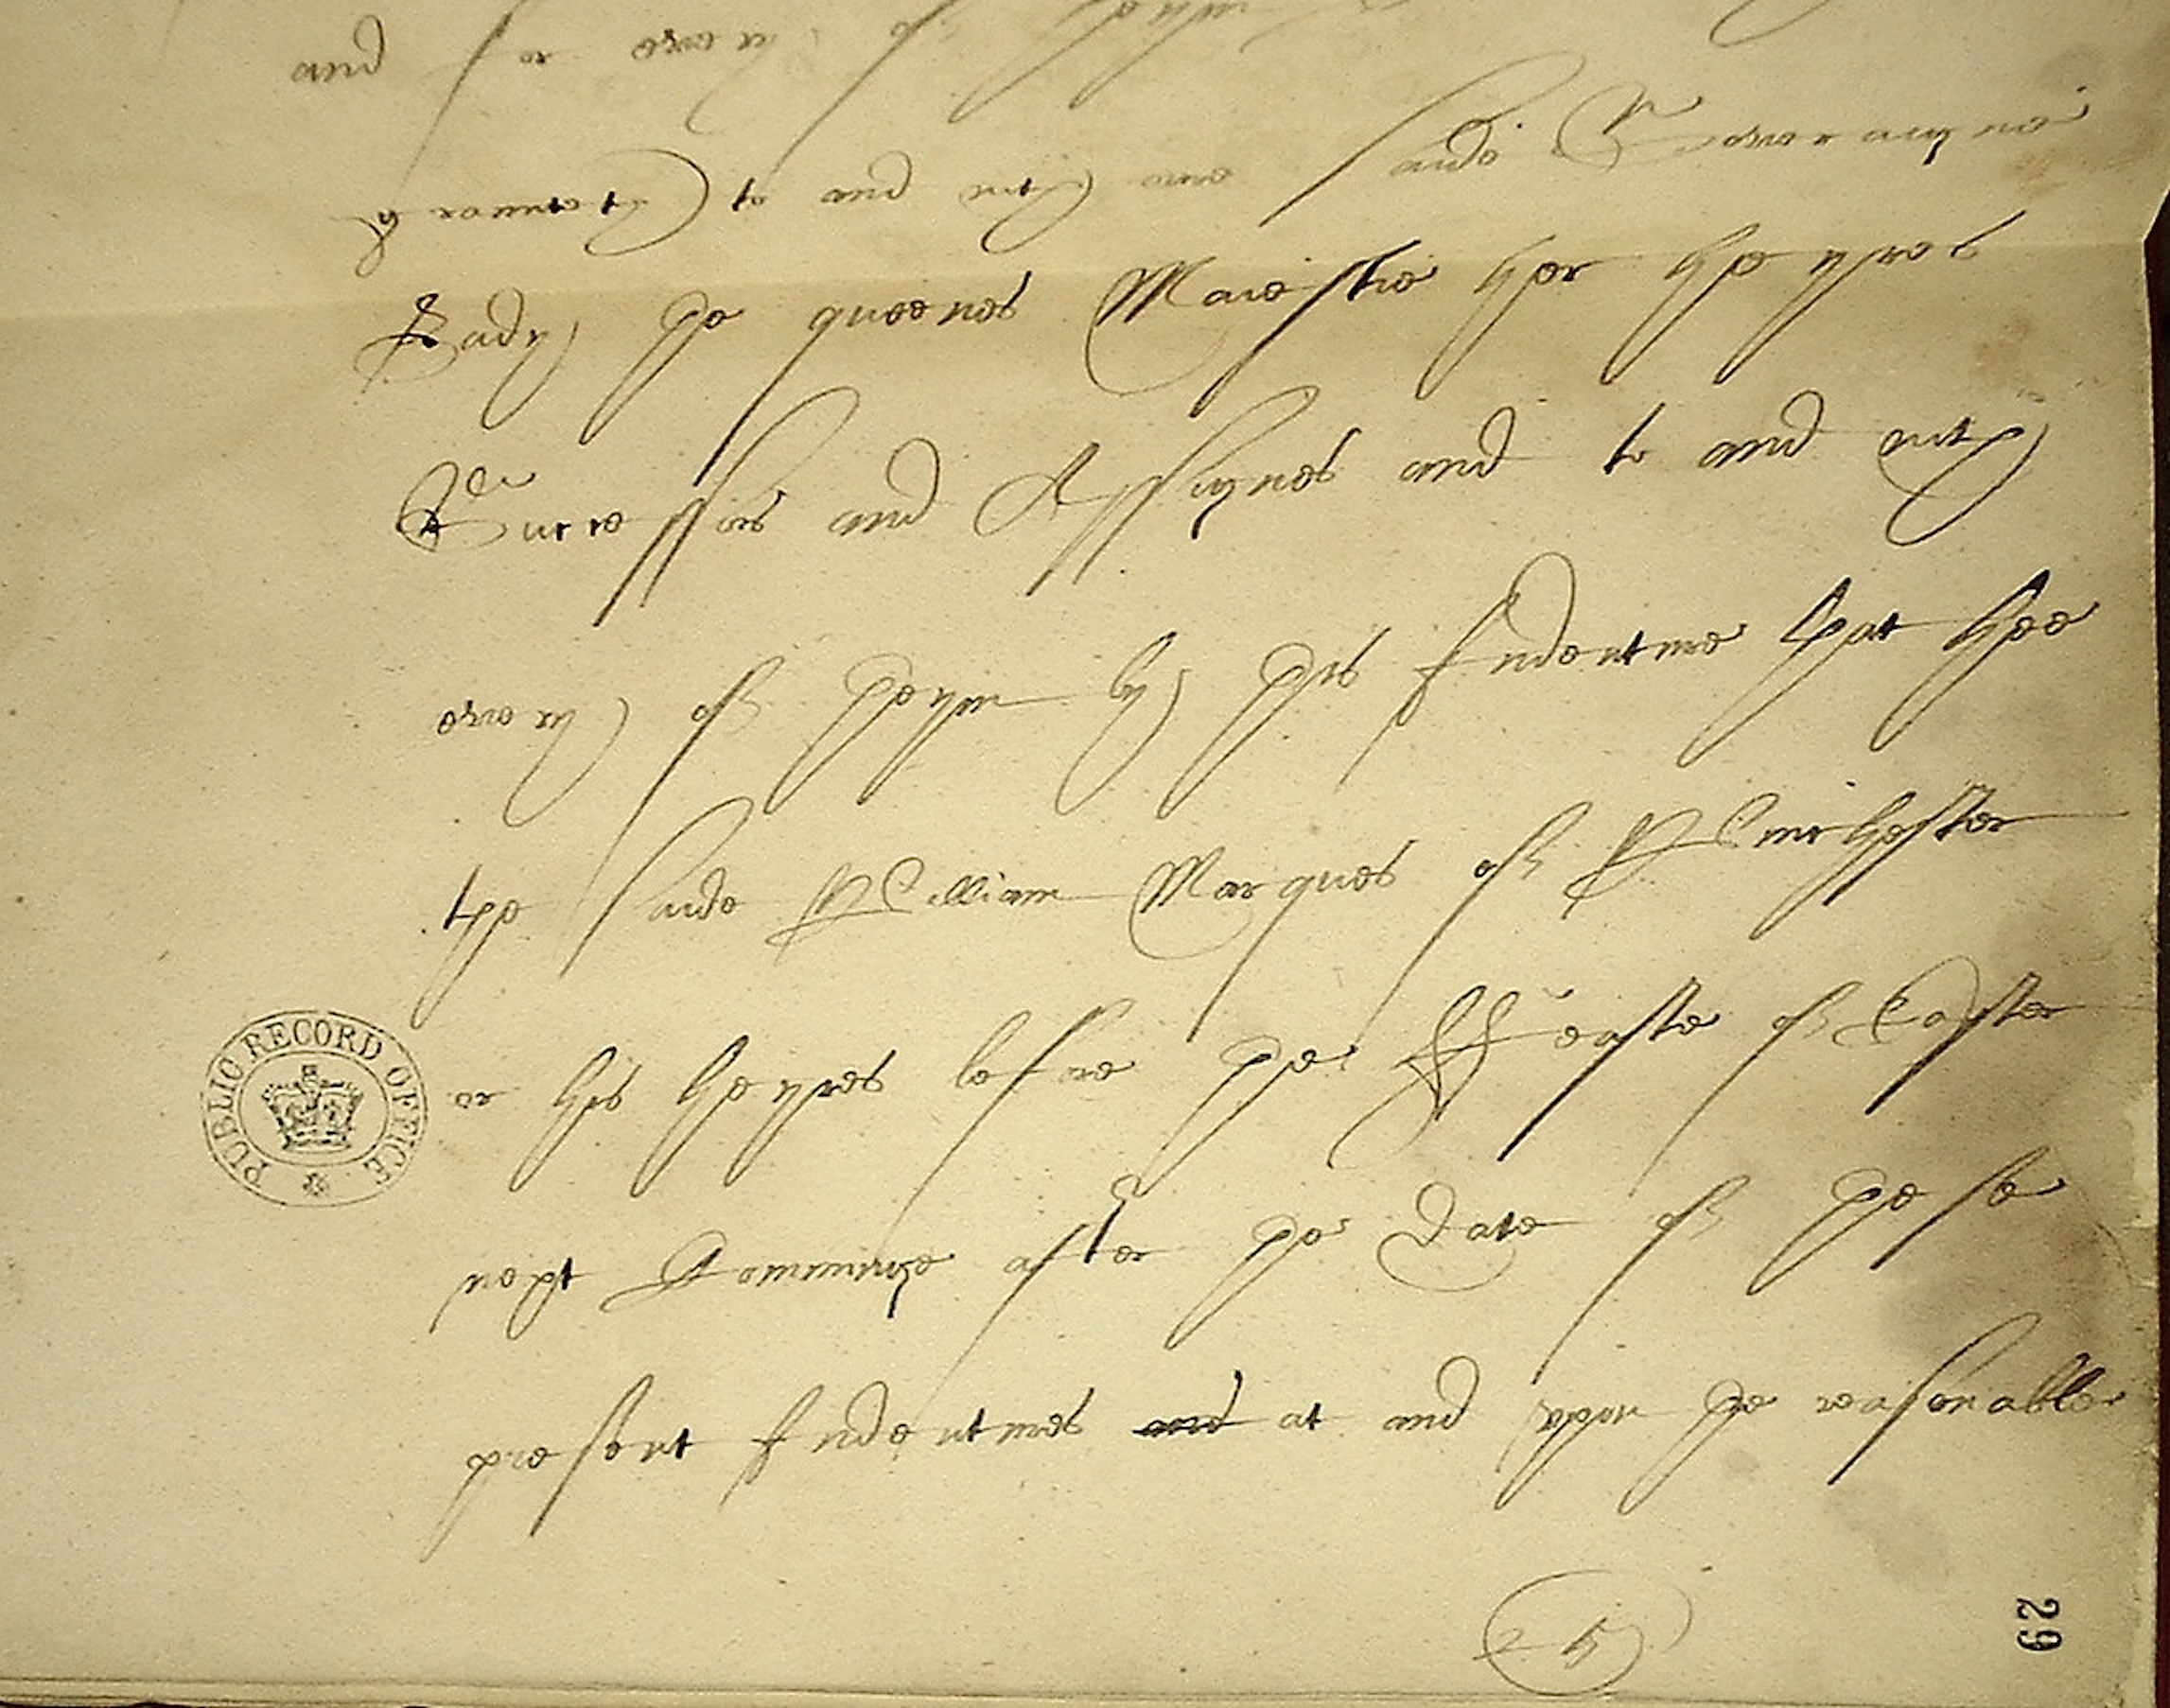 and for every of theym
graunteth to and with oure saide Soveraigne
Lady the quenes Maiestie her heyres
Successors and Assignes and to and with
every of theym by this Indenture that hee
the saide William Marques of Winchester
or his heyres before the Feaste of Easter
next Comminge after the Date of these
present Indentures and at and vppon the reasonable
PUBLIC RECORD OFFICE
5
29